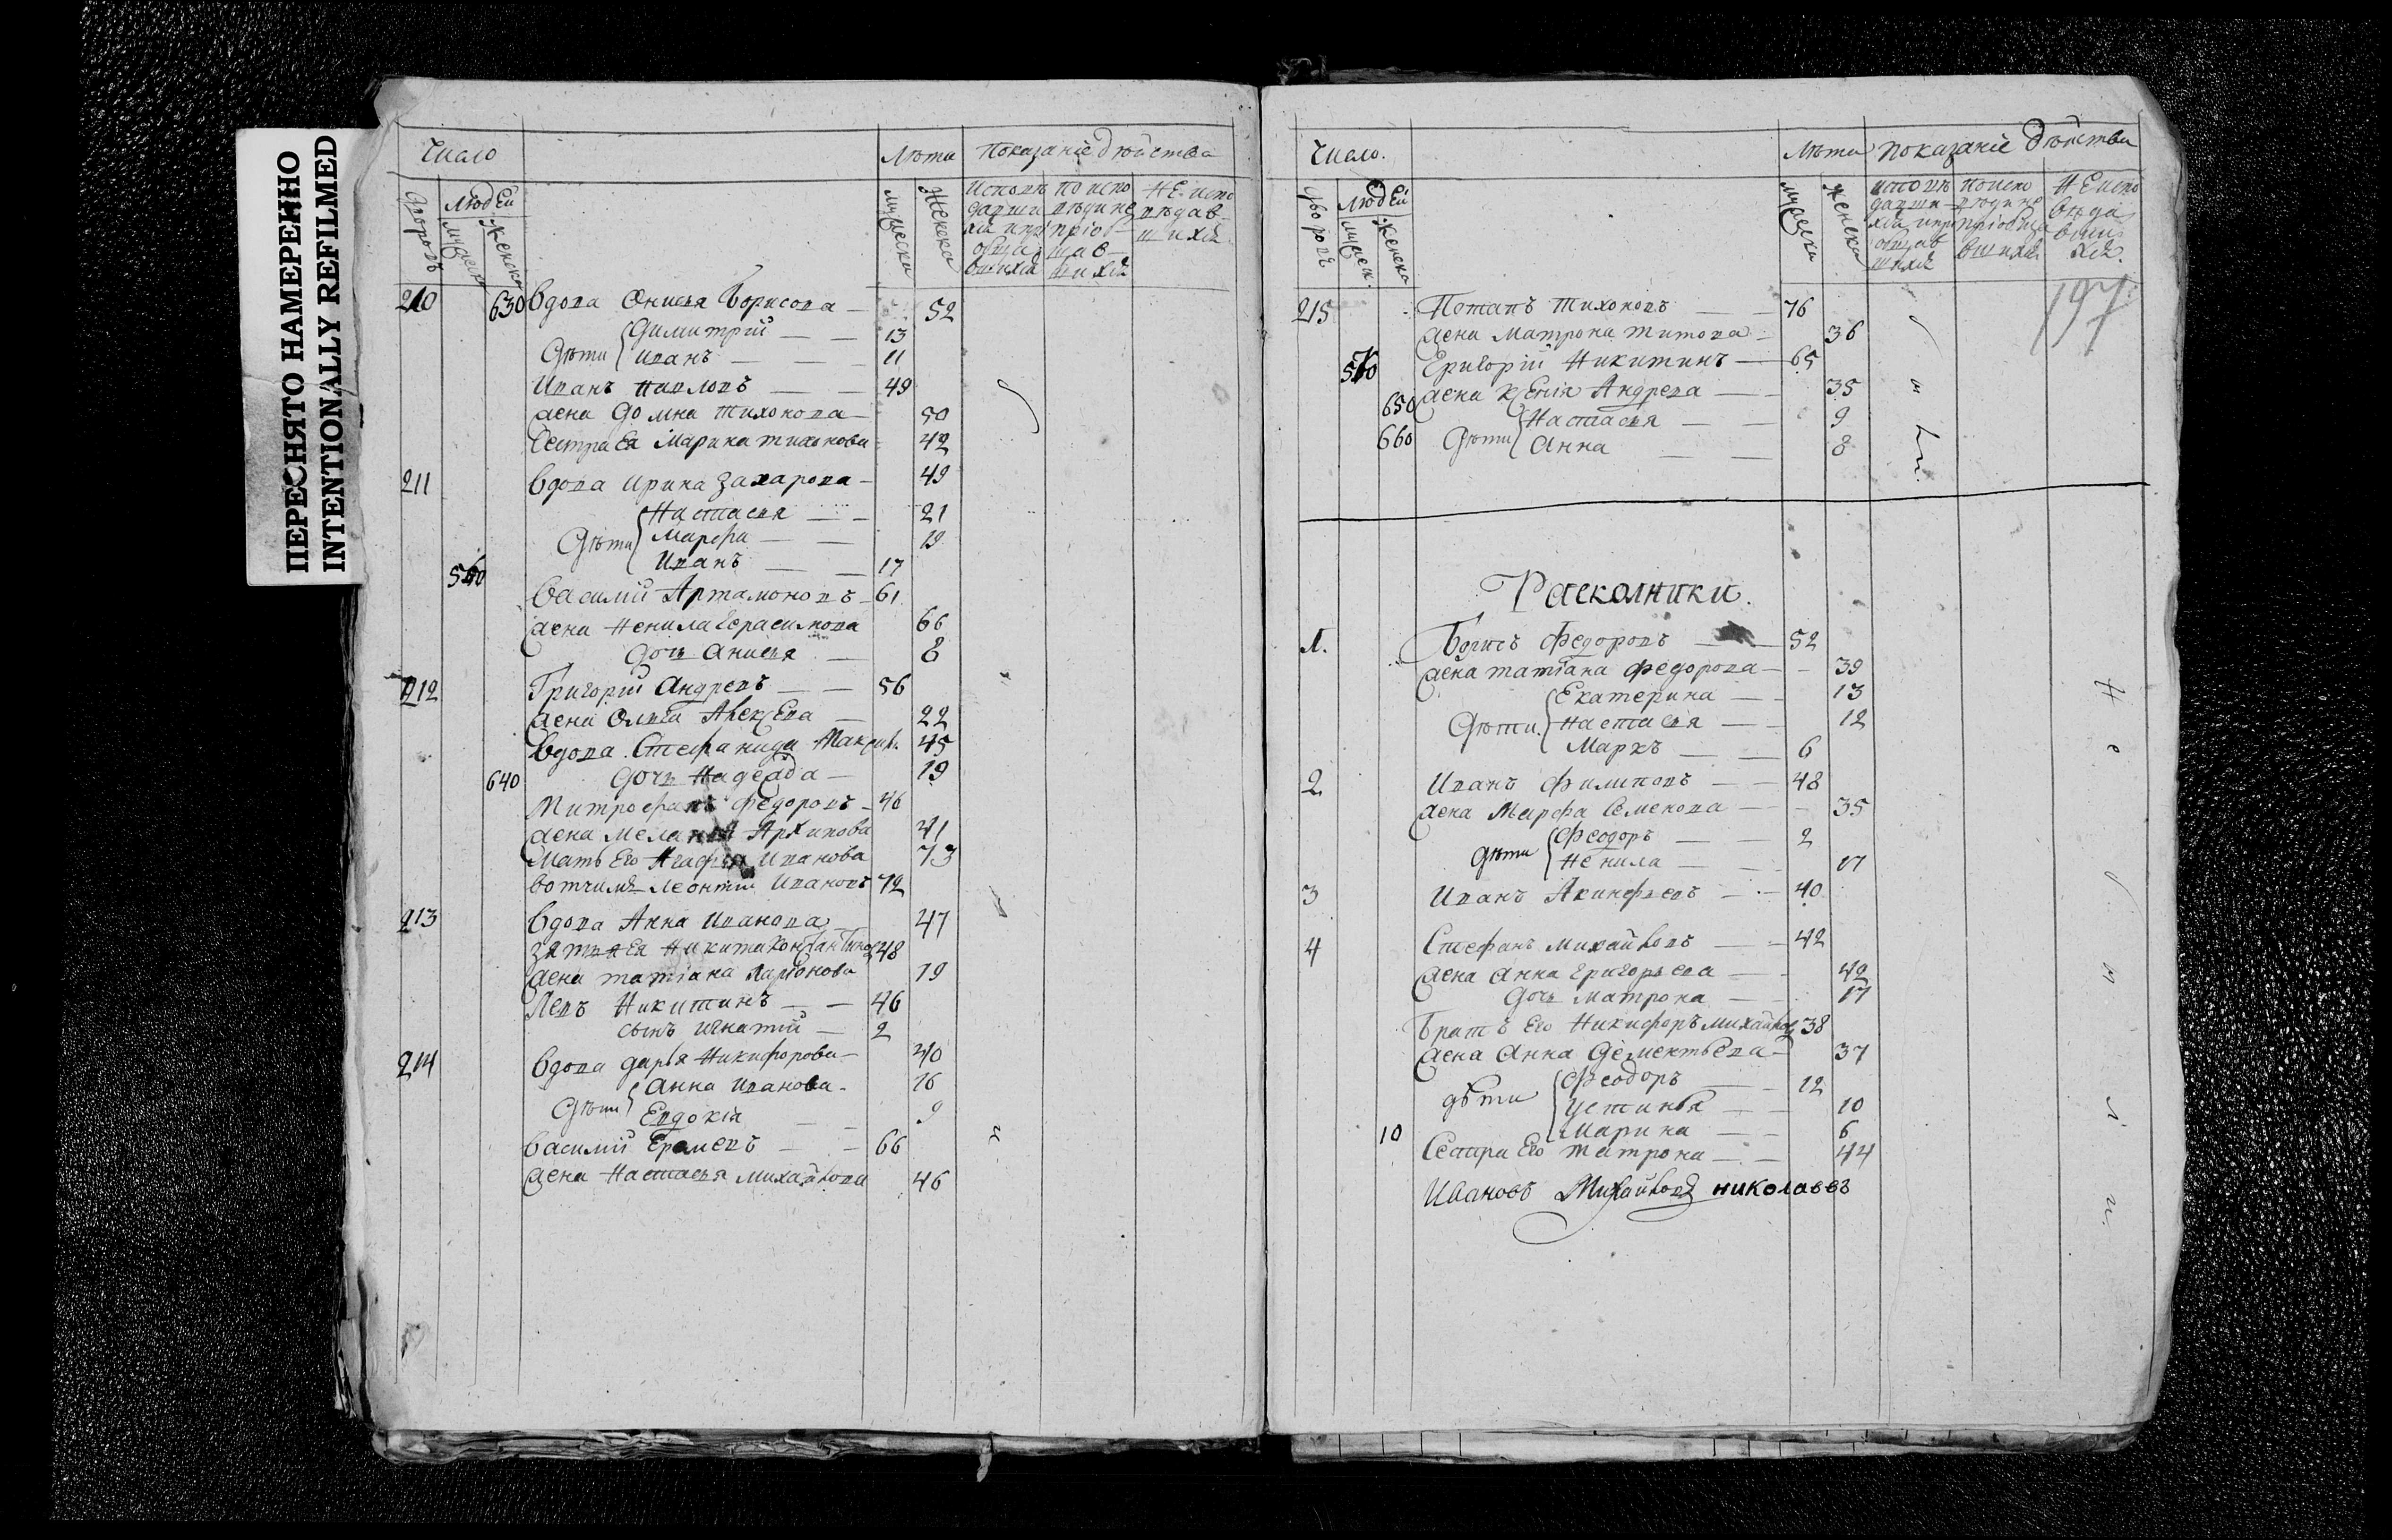 ПЕРЕСНЯТО НАМЕРЕННО
INTENTIONALLY REFILMED
Число Лѣта Показаніе дѣйства
дворовъ Людей мужеска женска мужеска женска
Исповѣ по испо НЕ испо
давши вѣди не вѣдав
хся и прі пріоб шихся
обща щав
вшихся шихся
210 630 Вдова Анисья Борисова 52
Димитрій 13
Дѣти Иванъ 11
Иванъ Павловъ 49
жена Домна Тихонова 50
Сестра Ея Марина Тихонова 42
211 Вдова Ирина Захарова 49
Настасья 21
Дѣти Марфа 19
Иванъ 17
Василій Артамоновъ 61
жена Ненила Герасимова 66
Дочь Анисья 8
212 Григорій Андревъ 56
жена Олга Алексева 22
Вдова Стефанида 45
640 Дочь Надежда 19
Митрофанъ Федоровъ 46
жена Меланья Архипова 41
Мать Его Агафья Иванова 73
вотчимъ Леонтій Ивановъ 72
213 Вдова Анна Иванова 47
Зять Ея Никита 48
жена Татіана Ларіонова 19
Левъ Никитинъ 46
сынъ Игнатій 2
214 Вдова Дарья Никифорова 40
Анна Иванова 16
Дѣти Евдокія 9
Василій Ермевъ 66
жена Настасья Михайлова 46
Число. Лѣта Показаніе дѣйства
дворовъ Людей мужеск. женска мужеска женска
197
215 Потапъ Тихоновъ 76
жена Матрона Титова 36
Григорій Никитинъ 65
650 жена Ксенія Андрева 35
Настасья 9
660 Дѣти Анна 8
Расколники.
1. Борисъ Федоровъ 52
жена Татіана Федорова 39
Екатерина 13
Дѣти Настасья 12
Маркъ 6
2. Иванъ Филиповъ 48
жена Марфа Семенова 35
Феодоръ 2
дѣти Ненила 17
3 Иванъ Акинфьевъ 40
4 Стефанъ Михайловъ 42
жена Анна Григорьева 42
Дочь Матрона 17
Братъ Его Никифоръ Михайлов 38
жена Анна Дементьева 37
Феодоръ 12
дѣти Устинья 10
10 Марина 6
Сестра Его Матрона 44
Ивановъ Михайловъ николаевъ